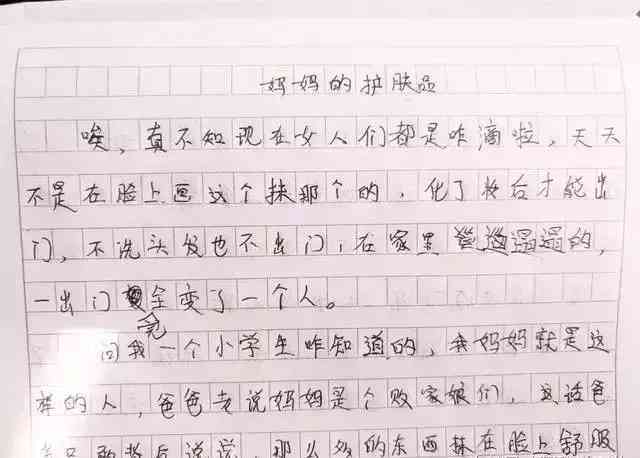 妈妈的护肤品
唉，真不知现在女人们都是咋滴啦，天天
不是在脸上画这个抹那个的，化了妆后才能出
门，不洗头发也不出门，在家里邋遢的，
一出门完全变了一个人。
问我一个小学生咋知道的，我妈妈就是这
样的人，爸爸老说妈妈是个败家娘们，这话爸
爸只敢背后说说，那么多的东西抹在脸上舒服